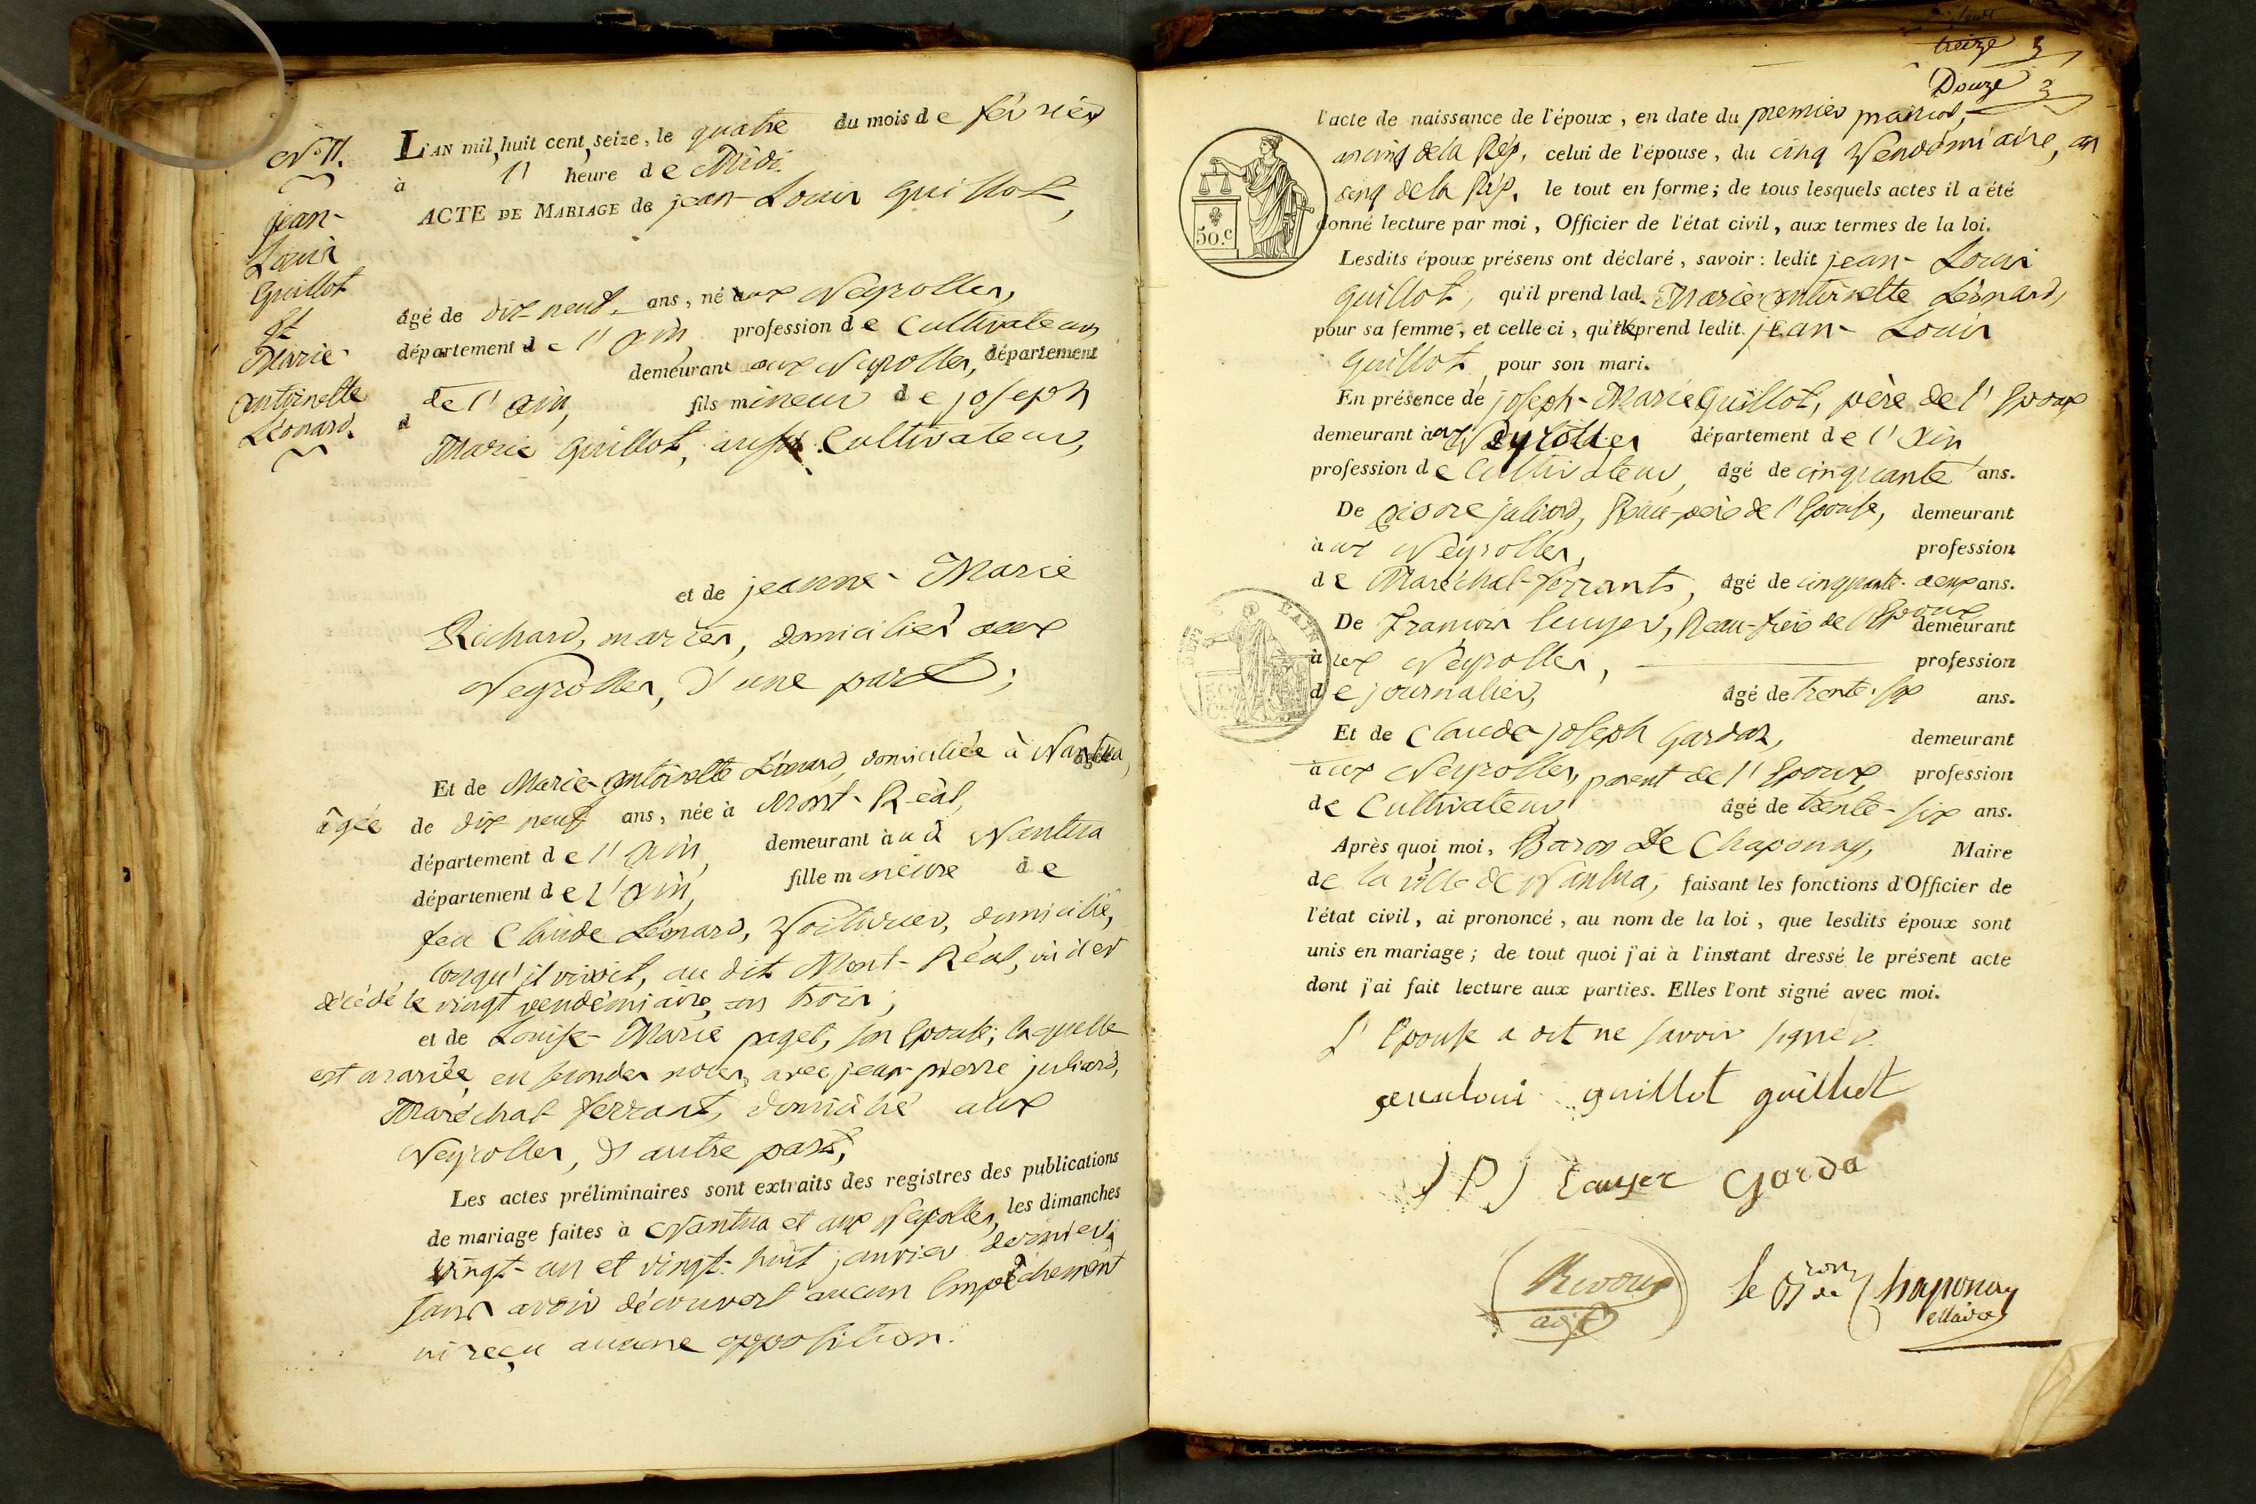 N.° 11.
jean-
Louis
Guillot
Et
Marie-
antoinette
Léonard.
L'AN mil huit cent seize, le quatre du mois de février
à l' heure de Midi.
ACTE DE MARIAGE de jean-Louis Guillot,
âgé de dix neuf ans, né aux Neyrolles,
département de l'ain, profession de Cultivateur,
demeurant aux Neyrolles, département
de l'ain, fils mineur de joseph
Marie Guillot, aussi Cultivateur,
et de jeanne-Marie
Richard, mariés, domiciliés aux
Neyrolles, d'une part;
Et de Marie-antoinette Léonard, domiciliée à Nantua,
âgée de dix neuf ans, née à Mont-Réal,
département de l'ain, demeurant à Nantua
département de l'ain, fille mineure de
feu Claude Léonard, Voiturier, domicilié,
lorsqu'il vivoit, au dit Mont-Réal, où il est
décédé le vingt vendémiaire, an trois;
et de Louise-Marie paget, son Epouse; laquelle
est mariée en secondes noces, avec jean-pierre juliard,
Maréchal ferrant, domicilié aux
Neyrolles, d'autre part;
Les actes préliminaires sont extraits des registres des publications
de mariage faites à Nantua et aux Neyrolles, les dimanches
vingt-un et vingt-huit janvier dernier,
sans avoir découvert aucun Empêchement
ni reçu aucune opposition.
treize
Douze
l'acte de naissance de l'époux, en date du premier prairial,
an cinq de la Rép. celui de l'épouse, du cinq Vendémiaire, an
cinq de la Rép. le tout en forme; de tous lesquels actes il a été
donné lecture par moi, Officier de l'état civil, aux termes de la loi.
50.c
Lesdits époux présens ont déclaré, savoir: ledit jean-Louis
Guillot, qu'il prend lad. Marie-antoinette Léonard,
pour sa femme, et celle ci, qu'elle prend ledit jean-Louis
Guillot, pour son mari.
En présence de joseph-Marie Guillot, père de l'Epoux
demeurant aux Neyrolles département de l'ain
profession de Cultivateur, âgé de cinquante ans.
De pierre juliard, Beau-père de l'Epouse, demeurant
aux Neyrolles, profession
de Maréchal-ferrant, âgé de cinquante-deux ans.
De francois Ecuyer, Beau-frère de l'Epoux demeurant
aux Neyrolles, profession
de journalier, âgé de trente-six ans.
Et de Claude-joseph Gardaz, demeurant
aux Neyrolles, parent de l'Epoux, profession
de Cultivateur, âgé de trente-six ans.
Après quoi, moi, Baron De Chaponay, Maire
de la ville de Nantua, faisant les fonctions d'Officier de
l'état civil, ai prononcé, au nom de la loi, que lesdits époux sont
unis en mariage; de tout quoi j'ai à l'instant dressé le présent acte
dont j'ai fait lecture aux parties. Elles l'ont signé avec moi.
l'Epouse a dit ne savoir signer.
jeanloui guillot guilliot
J P J Gorda
le Bron de Chaponay
Maire